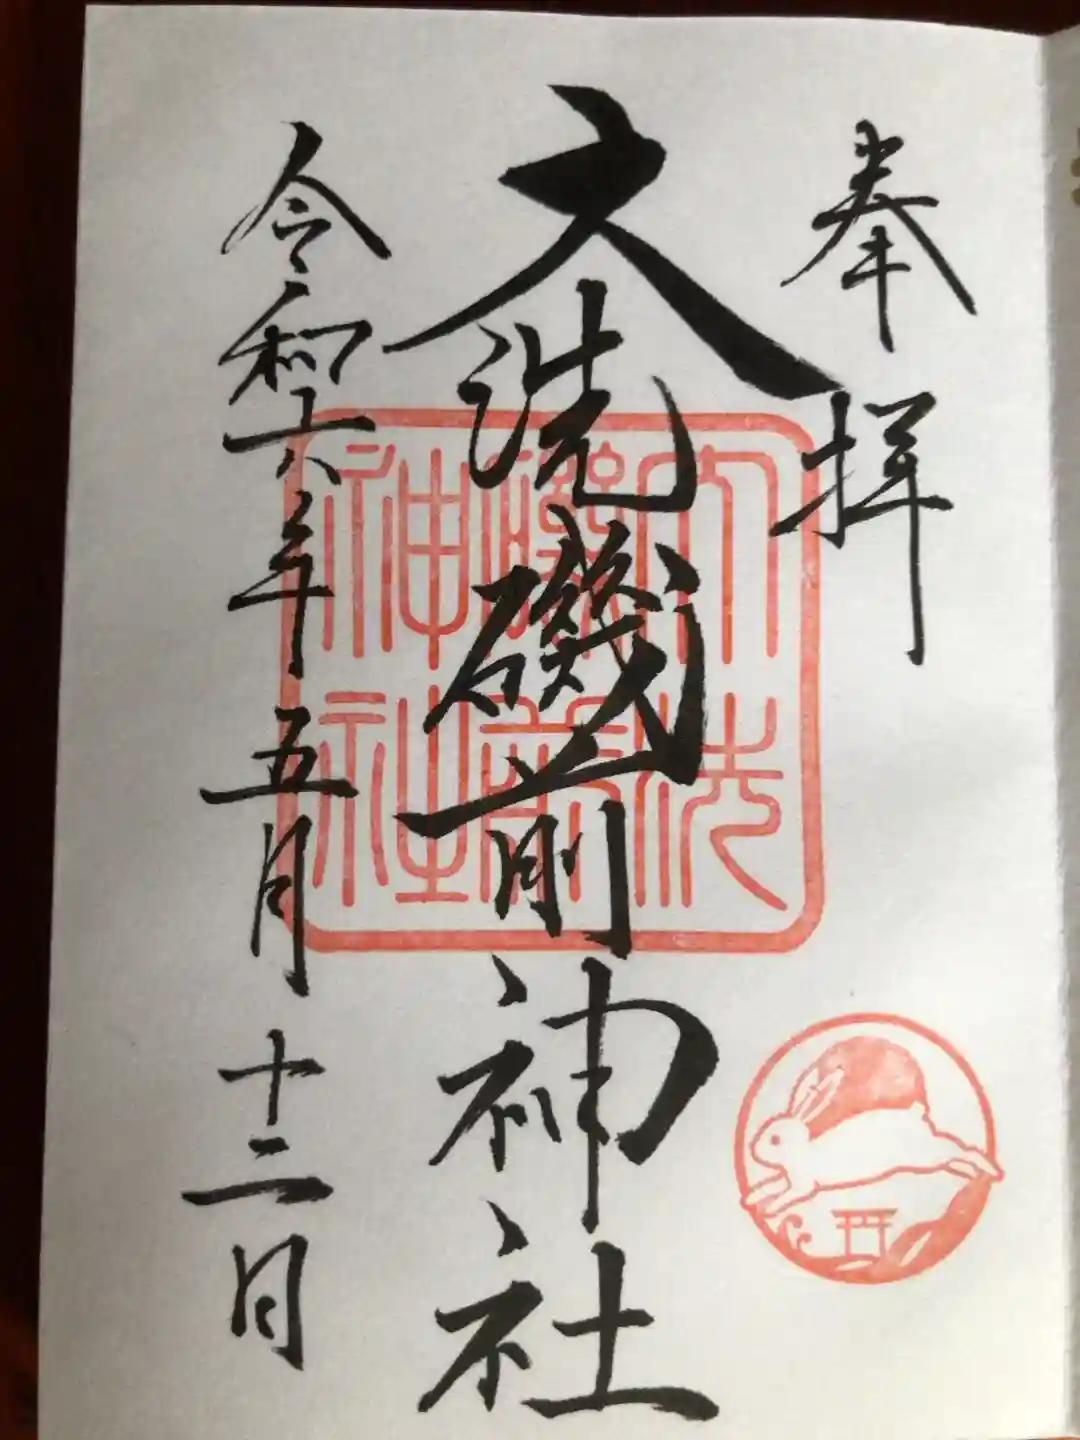 奉拝
大洗磯前神社
令和六年五月十二日
大洗
磯前
神社